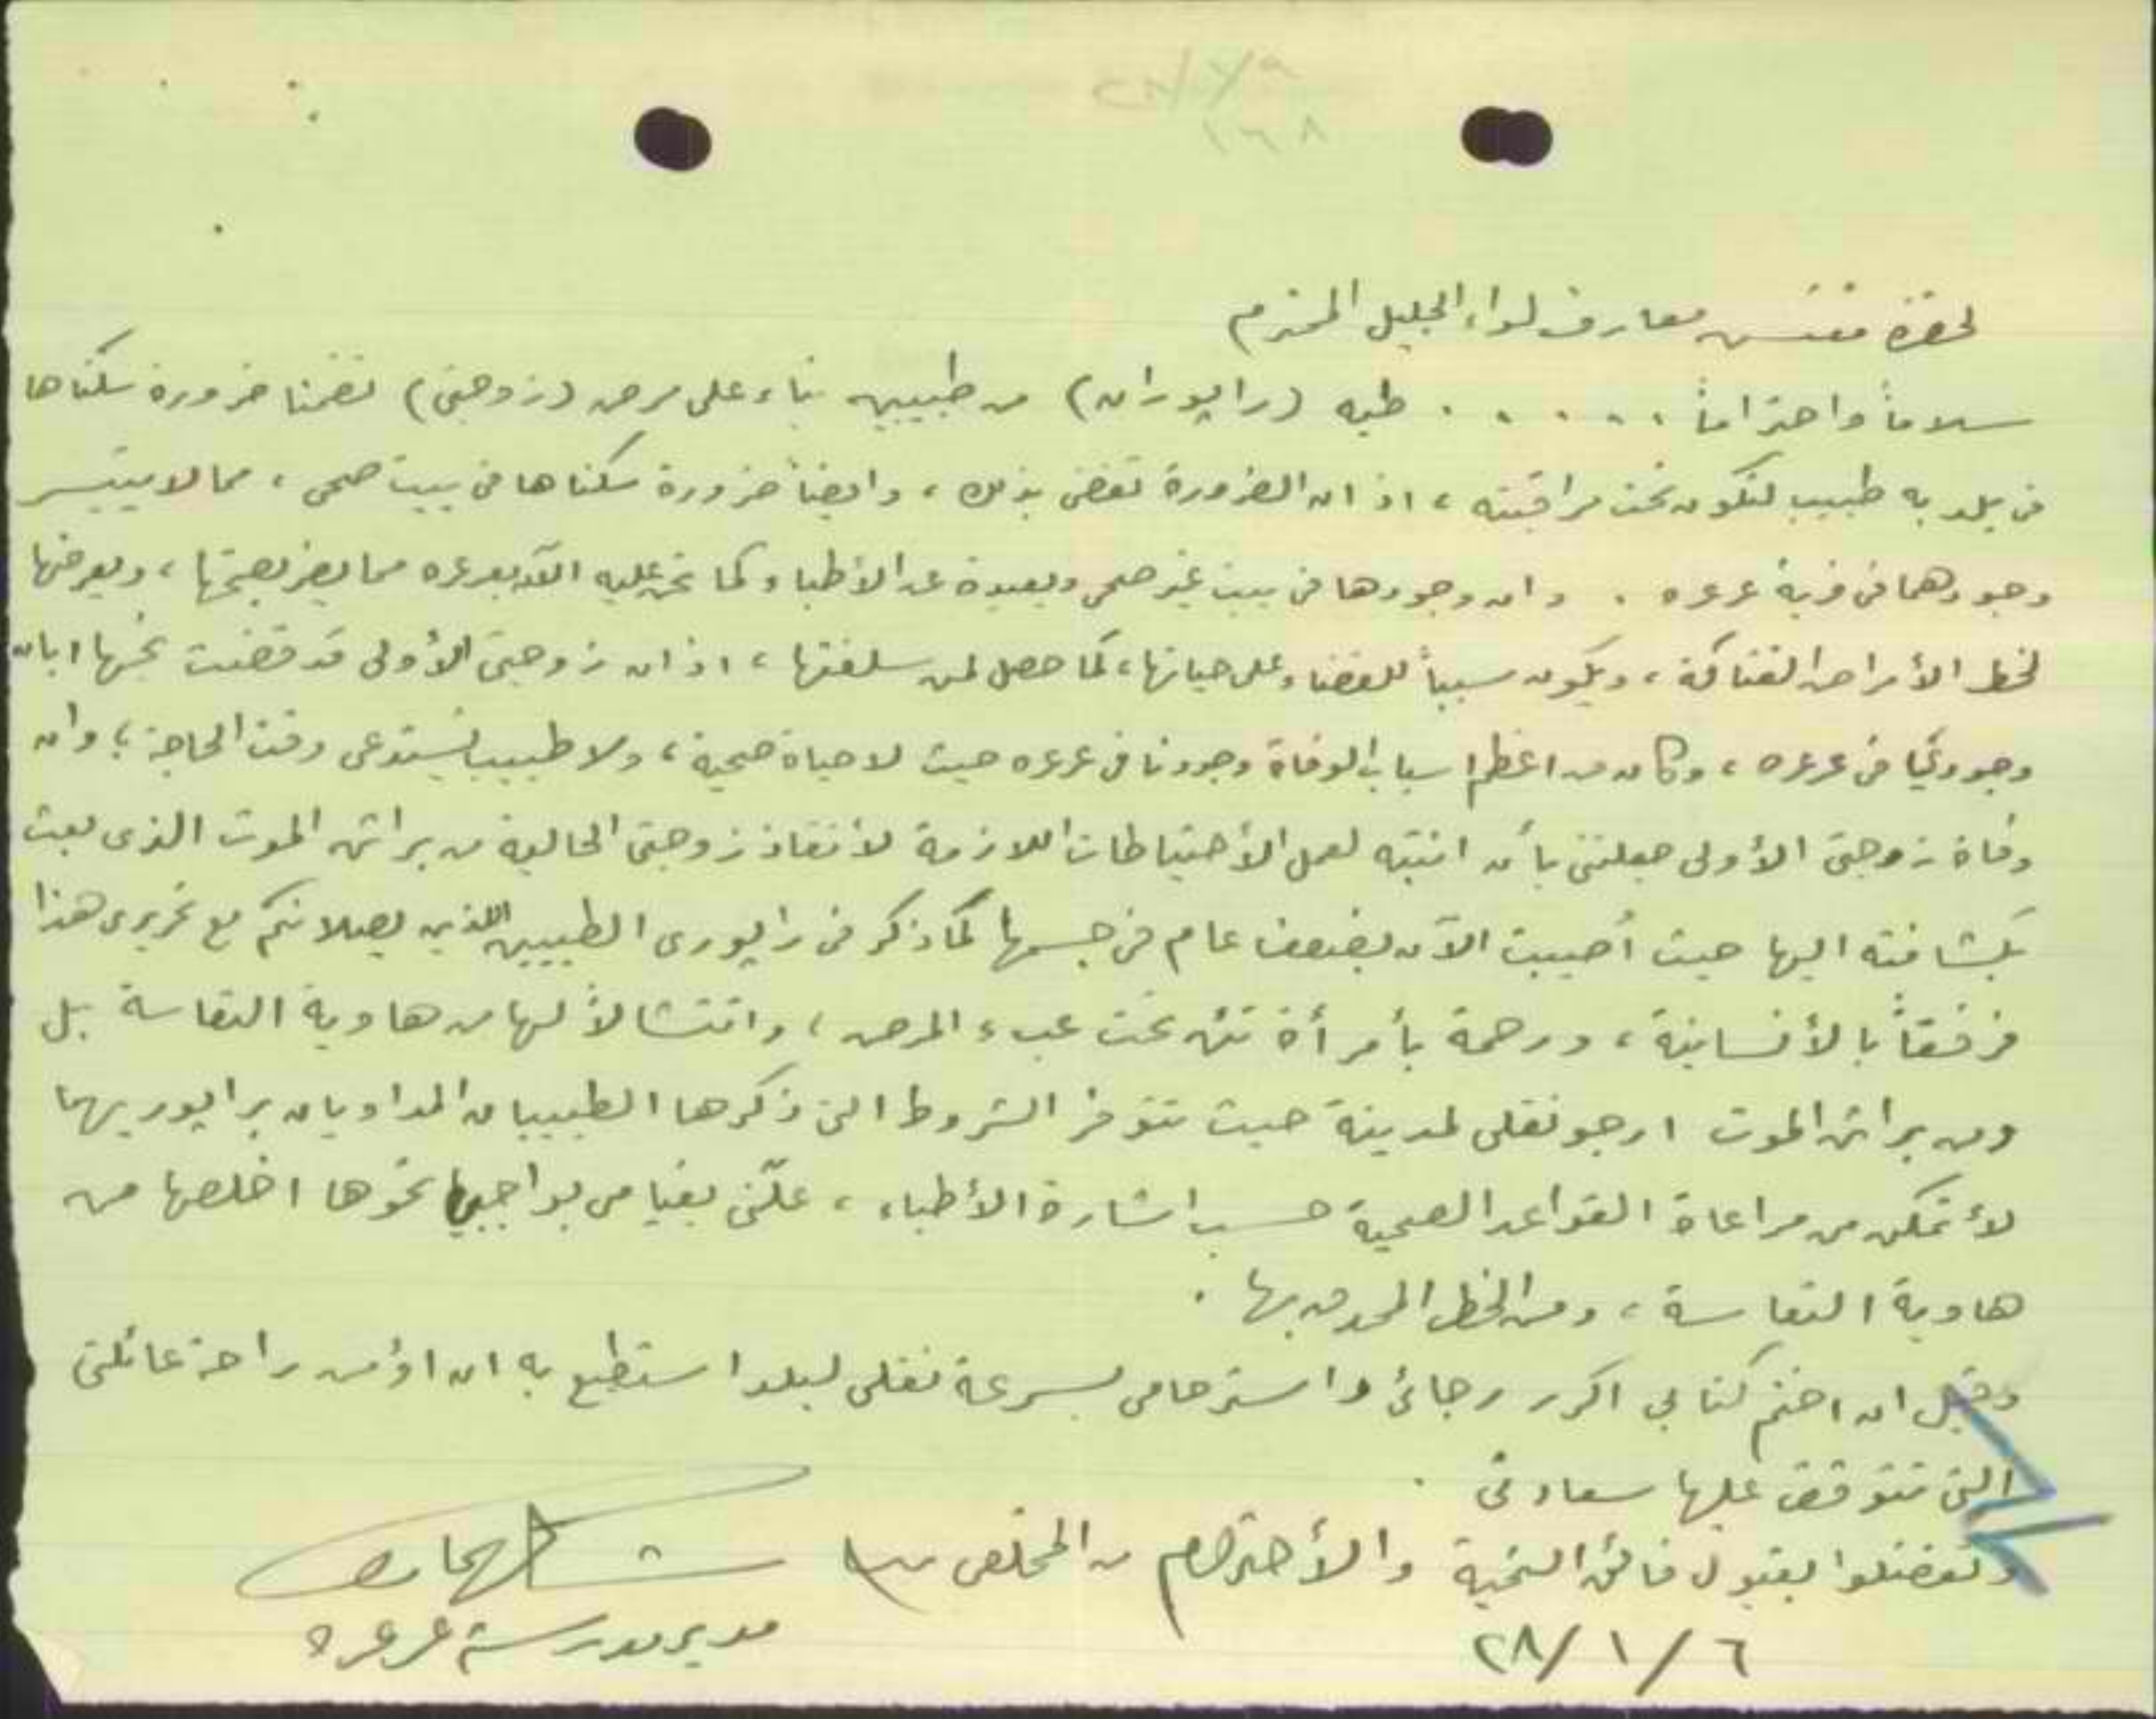 لحضرة مفتش معارف لواء الجليل المحترم
سلاماً واحتراماً ..... طيه (رابوران) من طبيبين بناء على مرض (زوجتي) تضمنا ضرورة سكناها
في بلد به طبيب لتكون تحت مراقبته ، اذ ان الضرورة تقضي بذلك ، وايضاً ضرورة سكناها في بيت صحي ، مما لا يتيسر
وجودهما في قرية عرعره . وان وجودها في بيت غير صحي وبعيدة عن الأطباء كما نحن عليه الآن بعرعره مما يضر بصحتها ، ويعرضها
لخطر الأمراض الفتاكة ، ويكون سبباً للقضاء على حياتها ، كما حصل لمن سلفتها ، اذ ان زوجتي الأولى قد قضت نحبها ابان
وجودي في عرعره ، وكان من اعظم اسباب الوفاة وجودنا في عرعره حيث لا حياة صحية ، ولا طبيب يستدعى وقت الحاجة ، وان
وفاة زوجتي الأولى جعلتني بأن انتبه لعمل الأحتياطات اللازمة لأنقاذ زوجتي الحالية من براثن الموت الذي بعث
بكشافته اليها حيث أصيبت الآن بضعف عام في جسمها كما ذكر في رابوري الطبيبين اللذين يصلانكم مع تحريري هذا
فرفقاً بالأنسانية ، ورحمة بأمرأة تئن تحت عبء المرض ، وانتشالاً لها من هاوية التعاسة بل
ومن براثن الموت ارجو نقلي لمدينة حيث تتوفر الشروط التي ذكرها الطبيبان المداويان برابوريهما
لأتمكن من مراعاة القواعد الصحية حسب اشارة الأطباء ، علّني بقيامي بواجبي نحوها اخلصها من
هاوية التعاسة ، ومن الخطر المحدق بها .
وقبل ان اختم كتابي اكرر رجائي واسترحامي بسرعة نقلي لبلد استطيع به ان اؤمن راحة عائلتي
التي تتوقف عليها سعادتي .
وتفضلوا بقبول فائق التحية والأحترام من المخلص
مدير مدرسة عرعره
٢٨/١/٦